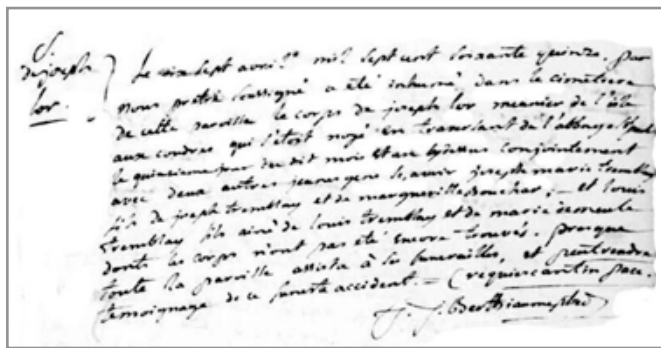 S.
de joseph
lor.
Le dix sept avril mil sept cent soixante quinze. par
nous prêtre soussigné a été inhumé dans le cimetiere
de cette paroisse le corps de joseph lor meunier de l'isle
aux coudres qui s'etoit noyé en traversant de
le quinzieme jour du dit mois et an conjointement
avec deux autres jeunes gens sçavoir joseph marie tremblay
fils de joseph tremblay et de margueritte Bouchar; — et louis
tremblay fils ainé de louis tremblay et de marie demeule
dont les corps n'ont pas été encore trouvés. presque
toute la paroisse assista à ses funerailles, et peut rendre
temoignage de ce funeste accident. — (requiescant in pace.
J. J. Berthiaume ptre